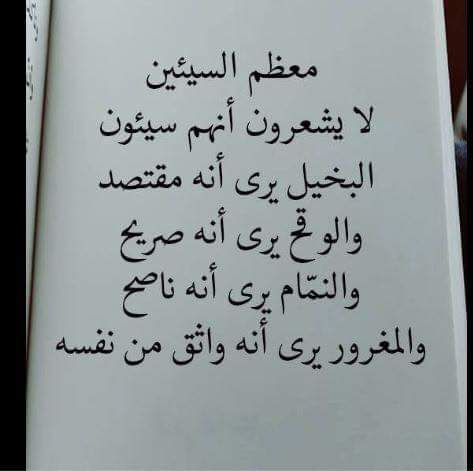 معظم السيئين
لا يشعرون أنهم سيئون
البخيل يرى أنه مقتصد
والوقح يرى أنه صريح
والنمّام يرى أنه ناصح
والمغرور يرى أنه واثق من نفسه